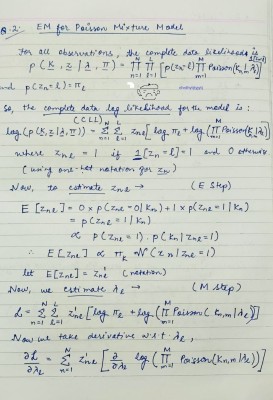 Q.2: EM for Poisson Mixture Model
For all observations, the complete data likelihood is
p(k, z | λ, π) = ∏_{n=1}^{N} ∏_{l=1}^{L} [p(zₙ=l) ∏_{m=1}^{M} Poisson(kₙ,ₘ|λₗ)]^{1[zₙ=l]}
and p(zₙ=l) = πₗ
So, the complete data log likelihood for the model is:
(CLL)
log(p(k,z|λ,π)) = Σ_{n=1}^{N} Σ_{l=1}^{L} zₙₗ [log πₗ + log(∏_{m=1}^{M} Poisson(k|λₗ)]
where zₙₗ = 1 if 1[zₙ=l] = 1 and 0 otherwise
(using one-hot notation for zₙ)
Now, to estimate zₙₗ → (E Step)
E[zₙₗ] = 0 × p(zₙₗ=0|kₙ) + 1 × p(zₙₗ=1|kₙ)
= p(zₙₗ=1|kₙ)
∝ p(zₙₗ=1) . p(kₙ|zₙₗ=1)
∴ E[zₙₗ] ∝ πₗ N(xₙ|zₙₗ=1)
let E[zₙₗ] = z'ₙₗ (notation)
Now, we estimate λₗ → (M step)
L = Σ_{n=1}^{N} Σ_{l=1}^{L} z'ₙₗ [log πₗ + log(∏_{m=1}^{M} Poisson(kₙ,ₘ|λₗ))]
Now we take derivative w.r.t. λₗ,
∂L/∂λₗ = Σ_{n=1}^{N} z'ₙₗ [∂/∂λₗ log(∏_{m=1}^{M} Poisson(kₙ,ₘ|λₗ))]